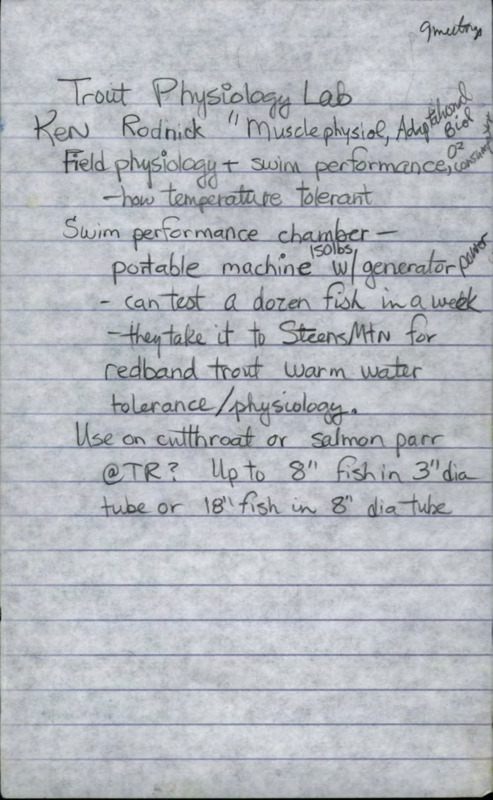 Trout Physiology Lab
Ken Rodnick "Muscle physiol, Adaptational Biol
Field physiology + swim performance, O2
- how temperature tolerant
Swim performance chamber -
150lbs
portable machine w/ generator power
- can test a dozen fish in a week
- they take it to Steens Mtn for
redband trout warm water
tolerance/physiology.
Use on cutthroat or salmon parr
@TR? Up to 8" fish in 3" dia
tube or 18" fish in 8" dia tube